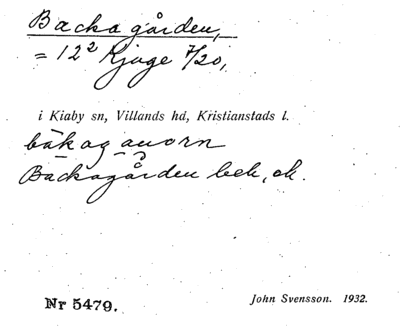 Backagården,
= 12² Kjuge 7/20,
i Kiaby sn, Villands hd, Kristianstads l.
Backagården bek, ok.
Nr 5479.
John Svensson. 1932.